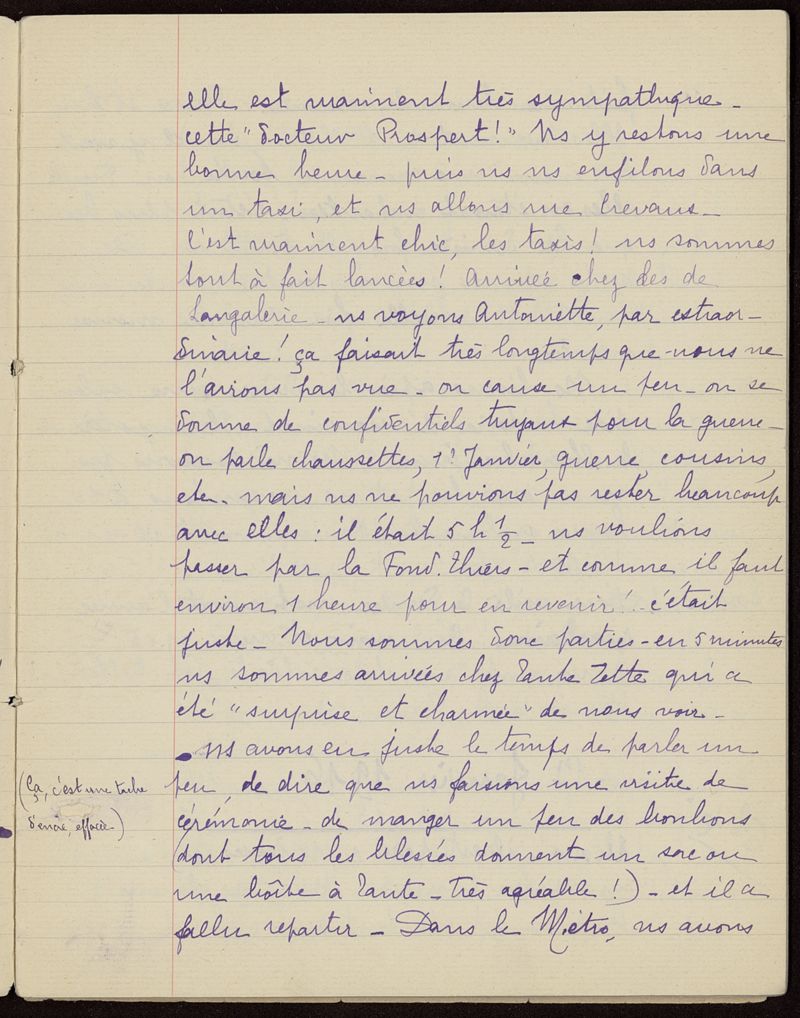 elle est vraiment très sympathique -
cette "docteur Prospert!" Ns y restons une
bonne heure - puis ns ns enfilons dans
un taxi, et ns allons rue Crevaux -
C'est vraiment chic, les taxis! ns sommes
tout à fait lancées! Arrivée chez les de
Langalerie - ns voyons Antoinette, par extraor-
dinaire! ça faisait très longtemps que nous ne
l'avions pas vue - on cause un peu - on se
donne de confidentiels tuyaux pour la guerre -
on parle chaussettes, 1er Janvier, guerre, cousins,
etc. mais ns ne pouvions pas rester beaucoup
avec elles : il était 5 h 1/2 - ns voulions
passer par la Fond. Thiers - et comme il faut
environ 1 heure pour en revenir! c'était
juste - Nous sommes donc parties - en 5 minutes
ns sommes arrivées chez Tante Zette qui a
été "surprise et charmée" de nous voir -
ns avons eu juste le temps de parler un
peu, de dire que ns faisions une visite de
(Ça, c'est une tache
d'encre, effacée -)
cérémonie - de manger un peu des bonbons
(dont tous les blessés donnent un sac ou
une boîte à Tante - très agréable!) - et il a
fallu repartir - Dans le Métro, ns avons